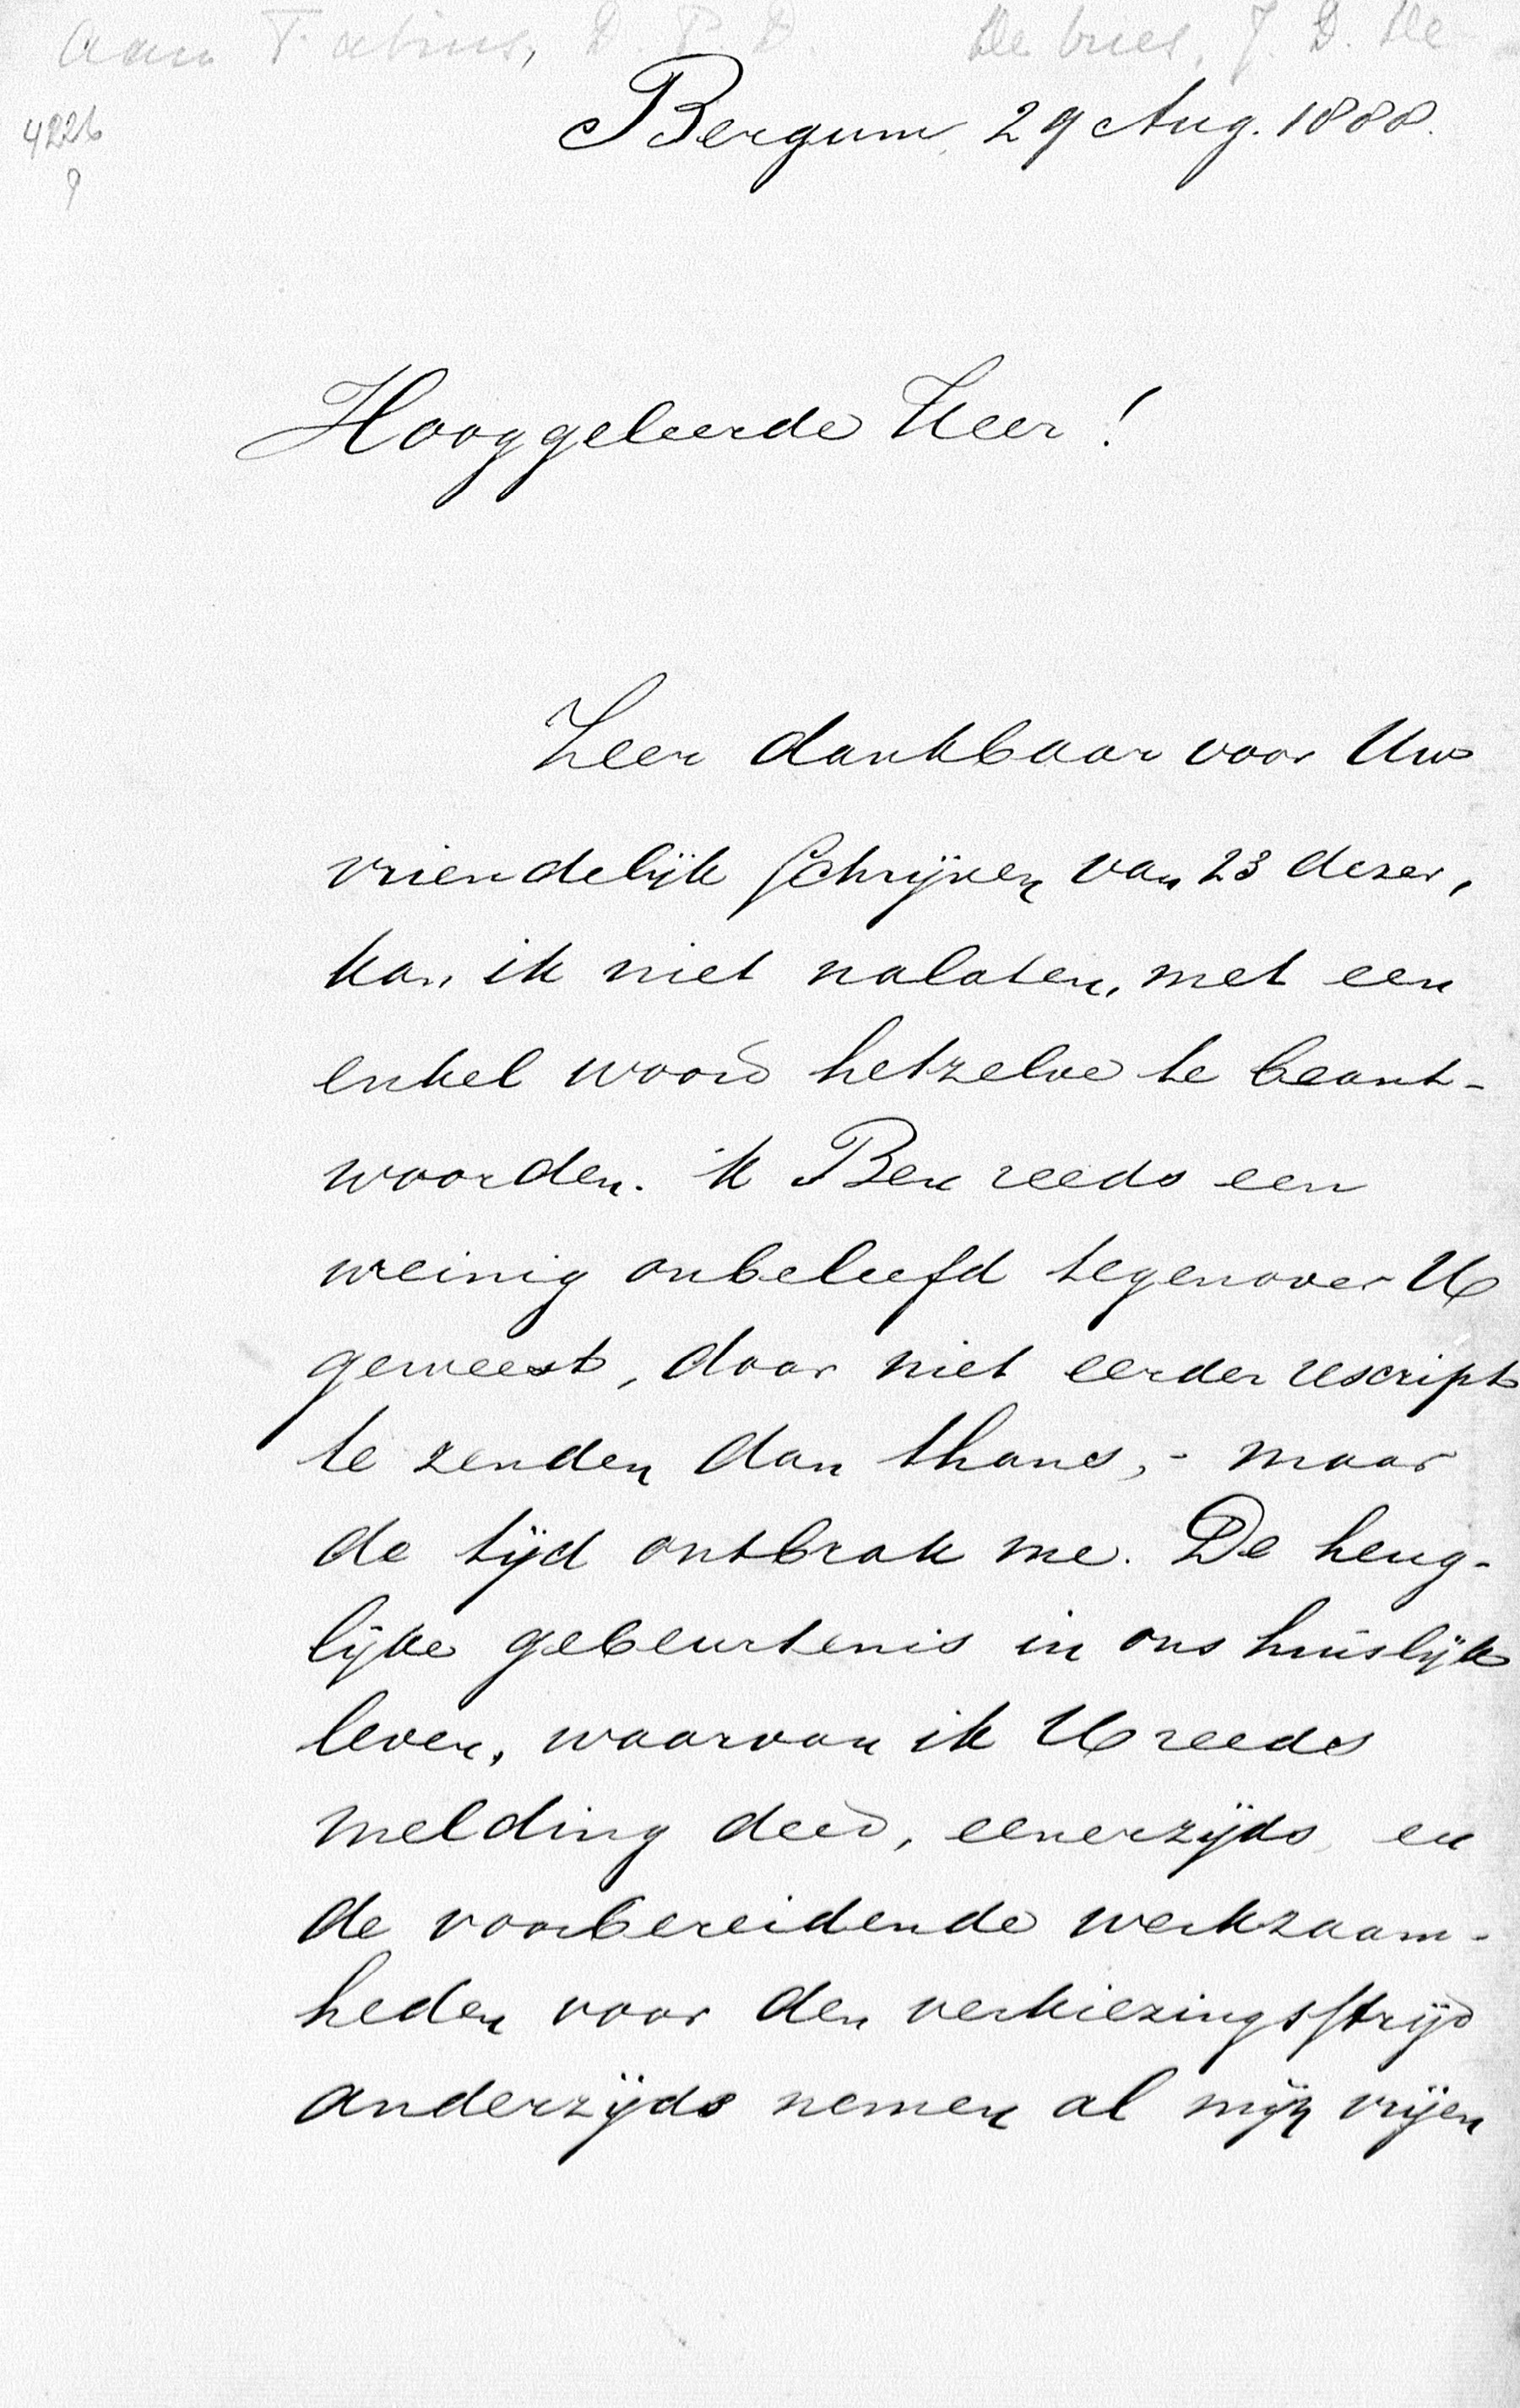 Aan Fabius, D. P. D. De Vries, J. D. de
4226
Bergum, 29 Aug. 1888.
Hooggeleerde Heer!
Zeer dankbaar voor Uw
vriendelijk schrijven van 23 dezer,
kan ik niet nalaten, met een
enkel woord hetzelve te beant-
woorden. ik Ben reeds een
weinig onbeleefd tegenover U
geweest, door niet eerder rescript
te zenden dan thans, - maar
de tijd ontbrak me. De heug-
lijke gebeurtenis in ons huislijk
leven, waarvan ik U reeds
melding deed, eenerzijds, en
de voorbereidende werkzaam-
heden voor den verkiezingsstrijd
anderzijds nemen al mijn vrijen